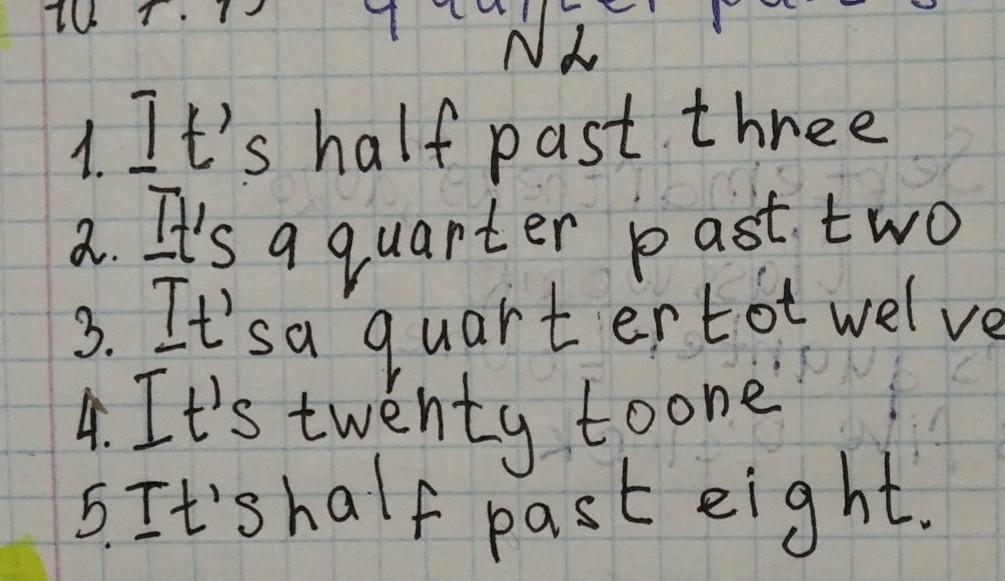 №2
1. It's half past three
2. It's a quarter past two
3. It's a quarter to twelve
4. It's twenty to one
5. It's half past eight.